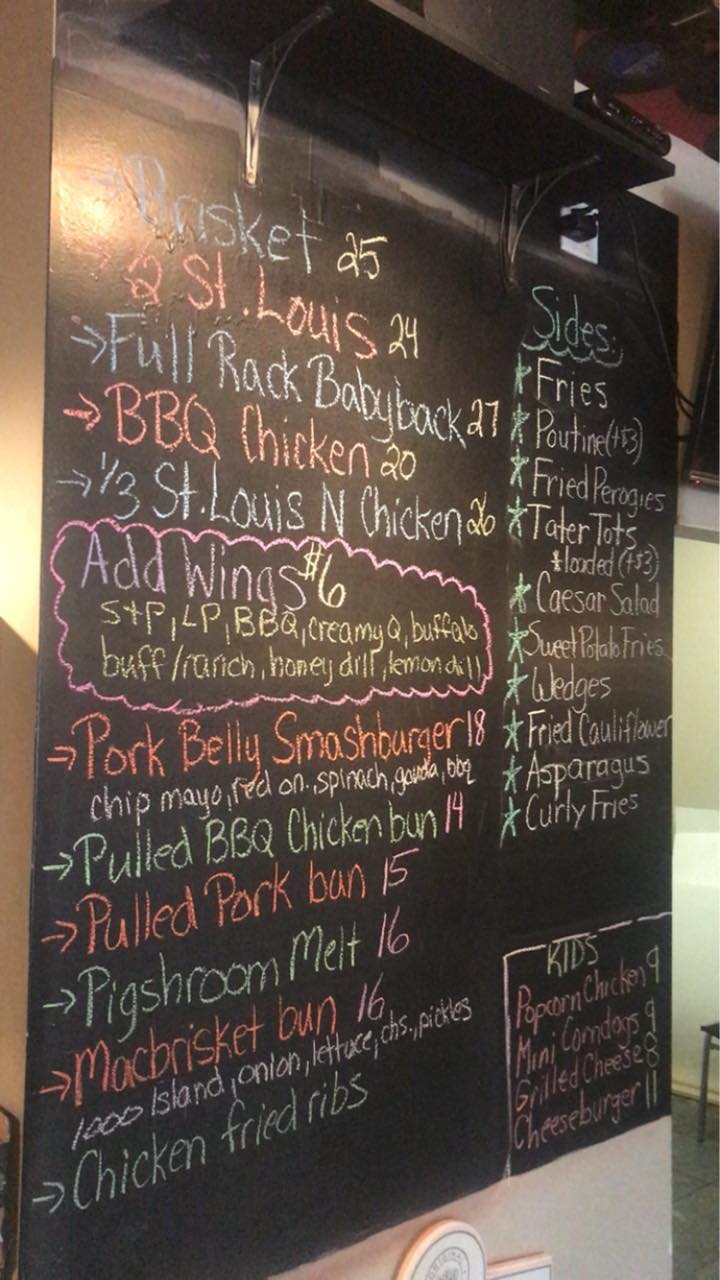 → Brisket 25
→ 2 St. Louis 24
→ Full Rack Babyback 27
→ BBQ Chicken 20
→ 1/3 St. Louis N Chicken 26
Add Wings $6
S+P, LP, BBQ, creamy Q, buffalo
buff/ranch, honey dill, lemon dill
→ Pork Belly Smashburger 18
chip mayo, red on. spinach, gouda, bbq
→ Pulled BBQ Chicken bun 14
→ Pulled Pork bun 15
→ Pigshroom Melt 16
→ Macbrisket bun 16
1000 Island, onion, lettuce, chs., pickles
→ Chicken fried ribs
Sides:
* Fries
* Poutine (+$3)
* Fried Perogies
* Tater Tots
* loaded (+$3)
* Caesar Salad
* Sweet Potato Fries
* Wedges
* Fried Cauliflower
* Asparagus
* Curly Fries
KIDS
Popcorn Chicken 9
Mini Corndogs 9
Grilled Cheese 8
Cheeseburger 11
ORIGINAL